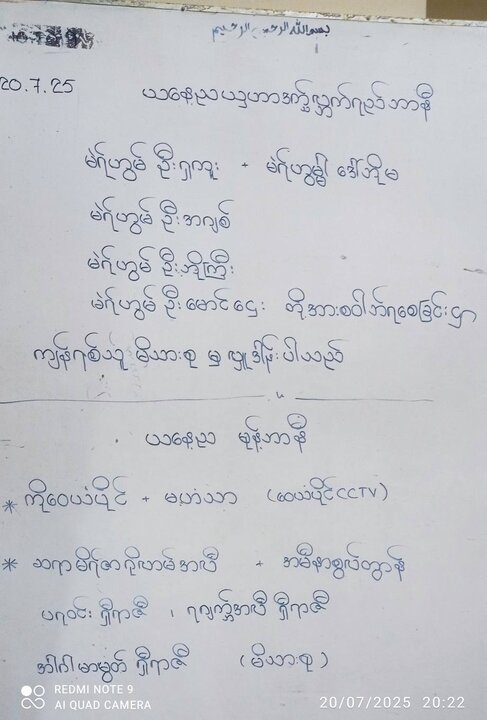 بسم الله الرحمن الرحيم
20.7.25
ယနေ့ည ယှဟာဒက်လွှက်ရည်ဘာနီ
မဲရ်ဟူမ် ဦးရှကူး + မဲရ်ဟူမ္မါ ဒေါ်ဘိုမ
မဲရ်ဟူမ် ဦးအဂျစ်
မဲရ်ဟူမ် ဦးဘိုကြီး
မဲရ်ဟူမ် ဦးမောင်ငွေး တို့အားစဝါဘ်ရစေခြင်းငှာ
ကျန်ရစ်သူ မိသားစု မှ လှူဒါန်းပါသည်
ယနေ့ည မုန့်ဘာနီ
* ကိုဝေယံပိုင် + မဟံသာ (ဝေယံပိုင် CCTV)
* ဆရာမိရ်ဇာဂိုလာမ်အလီ + အမီနာစူလ်တွာန်
ပရဝင်းရှီရာဇီ ၊ ရဂျက်ဘ်အလီရှီရာဇီ
အါဂါမာမွတ်ရှီရာဇီ (မိသားစု)
REDMI NOTE 9
AI QUAD CAMERA
20/07/2025 20:22